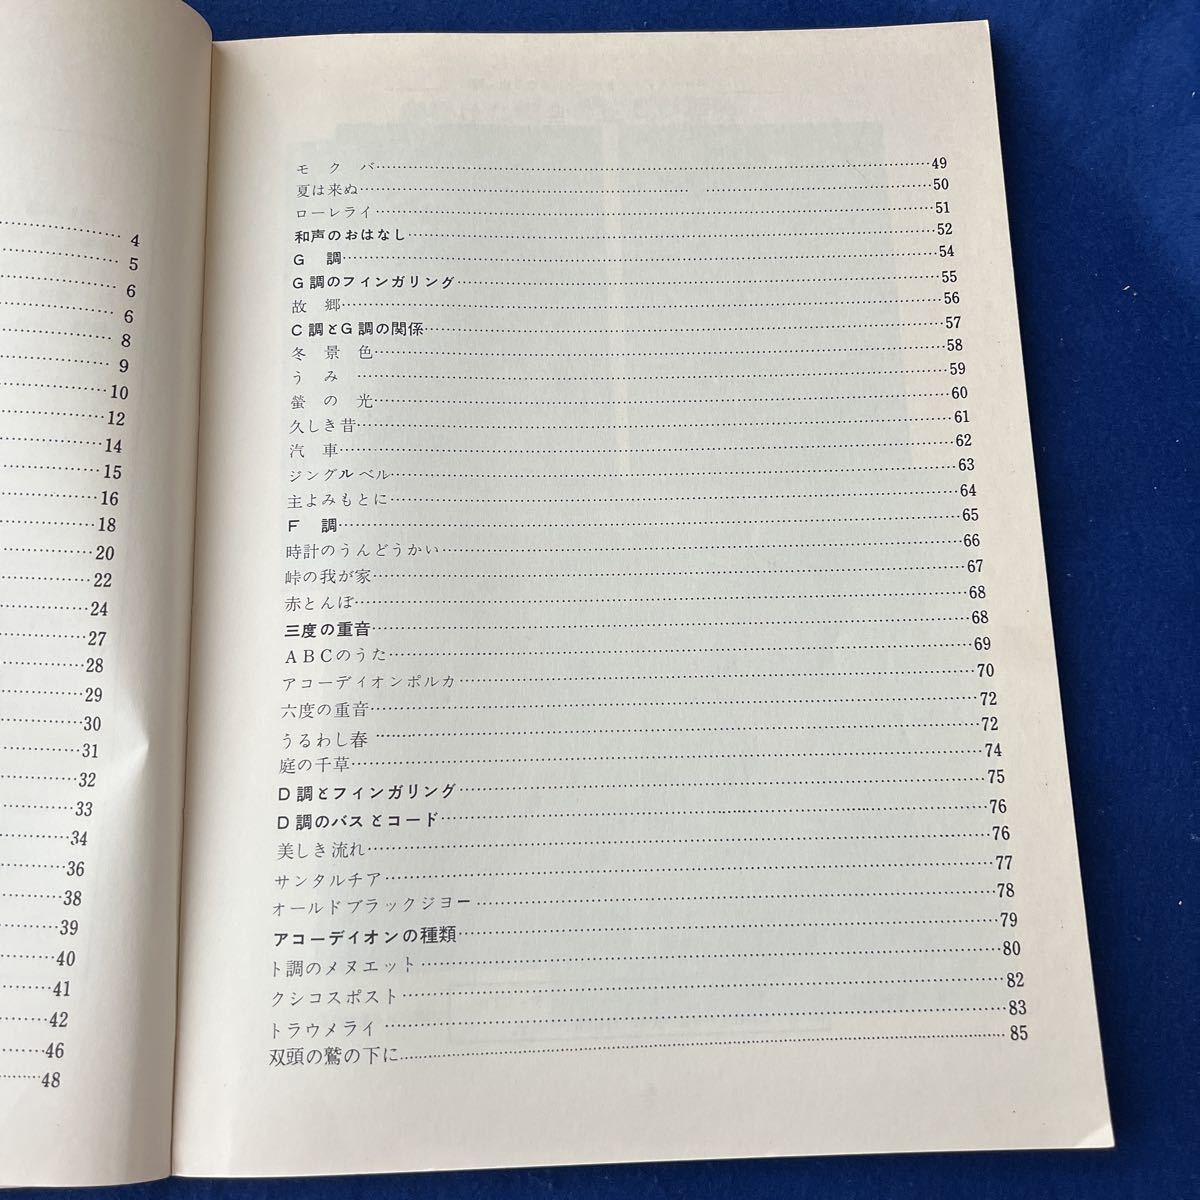 4
5
6
6
8
9
10
12
14
15
16
18
20
22
24
27
28
29
30
31
32
33
34
36
38
39
40
41
42
46
48
モ ク バ……49
夏は来ぬ……50
ローレライ……51
和声のおはなし……52
G 調……54
G調のフィンガリング……55
故 郷……56
C調とG調の関係……57
冬 景 色……58
う み……59
螢 の 光……60
久しき昔……61
汽 車……62
ジングルベル……63
主よみもとに……64
F 調……65
時計のうんどうかい……66
峠の我が家……67
赤とんぼ……68
三度の重音……68
ABCのうた……69
アコーディオンポルカ……70
六度の重音……72
うるわし春……72
庭の千草……74
D調とフィンガリング……75
D調のバスとコード……76
美しき流れ……76
サンタルチア……77
オールドブラックジョー……78
アコーディオンの種類……79
ト調のメヌエット……80
クシコスポスト……82
トラウメライ……83
双頭の鷲の下に……85